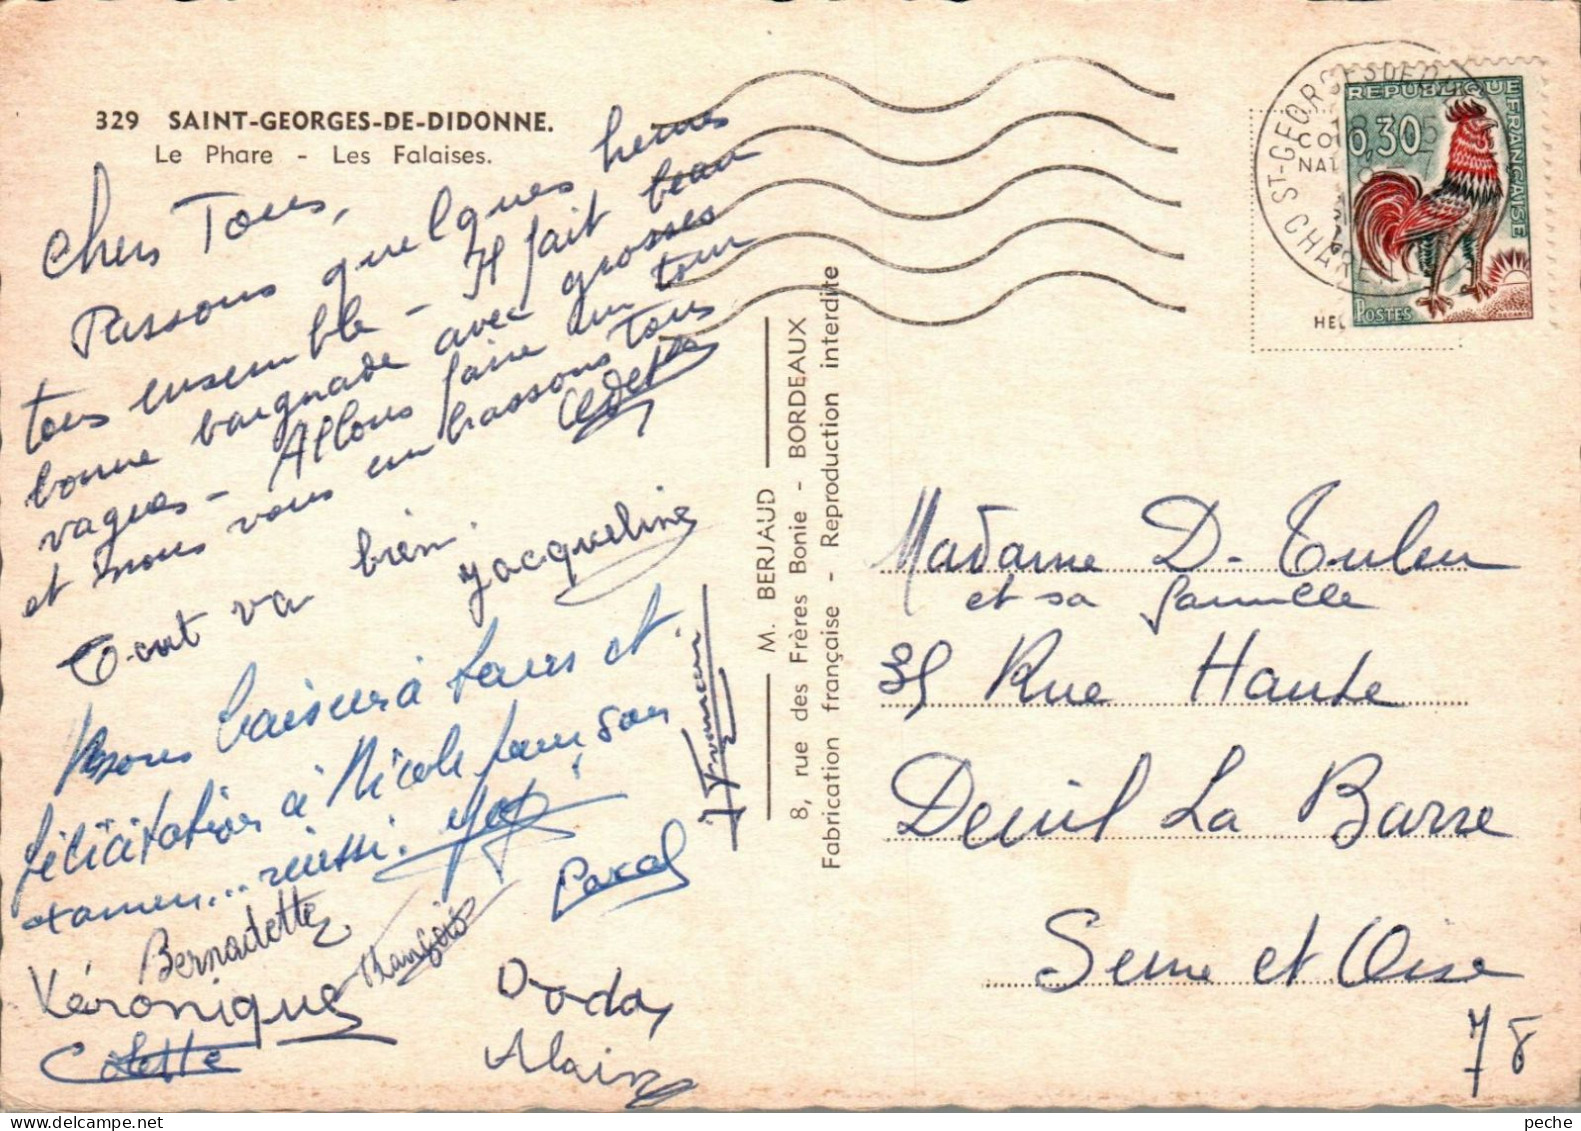 329 SAINT-GEORGES-DE-DIDONNE.
Le Phare - Les Falaises.
Chers Tous,
Passons quelques heures
tous ensemble - Il fait beau
bonne baignade avec grosses
vagues - Allons faire un tour
et nous vous embrassons tous
Tout va bien. Jacqueline
Bons baisers à tous et
félicitation à Nicole pour son
examen... réussi.
Pascal
Bernadette
François
Véronique
Dada
Colette
Alain
M. BERJAUD
8, rue des Frères Bonie - BORDEAUX
Fabrication française - Reproduction interdite
ST-GEORGES DE D
CHARE
REPUBLIQUE FRANÇAISE
0,30
POSTES
HEL
Madame D-
et sa famille
35 Rue Haute
Deuil La Barre
Seine et Oise
78
peche